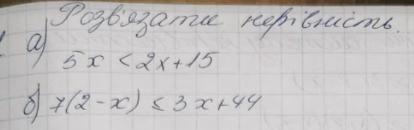 Розв'язати нерівність.
а)
5x < 2x+15
б) 7(2-x) ≤ 3x+44